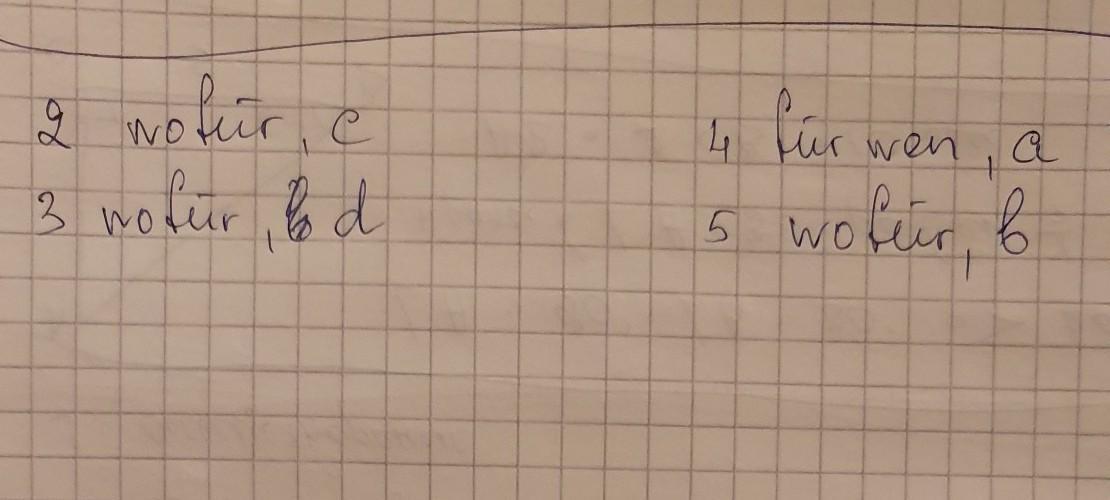 2 wofür, c
3 wofür, d
4 für wen, a
5 wofür, b